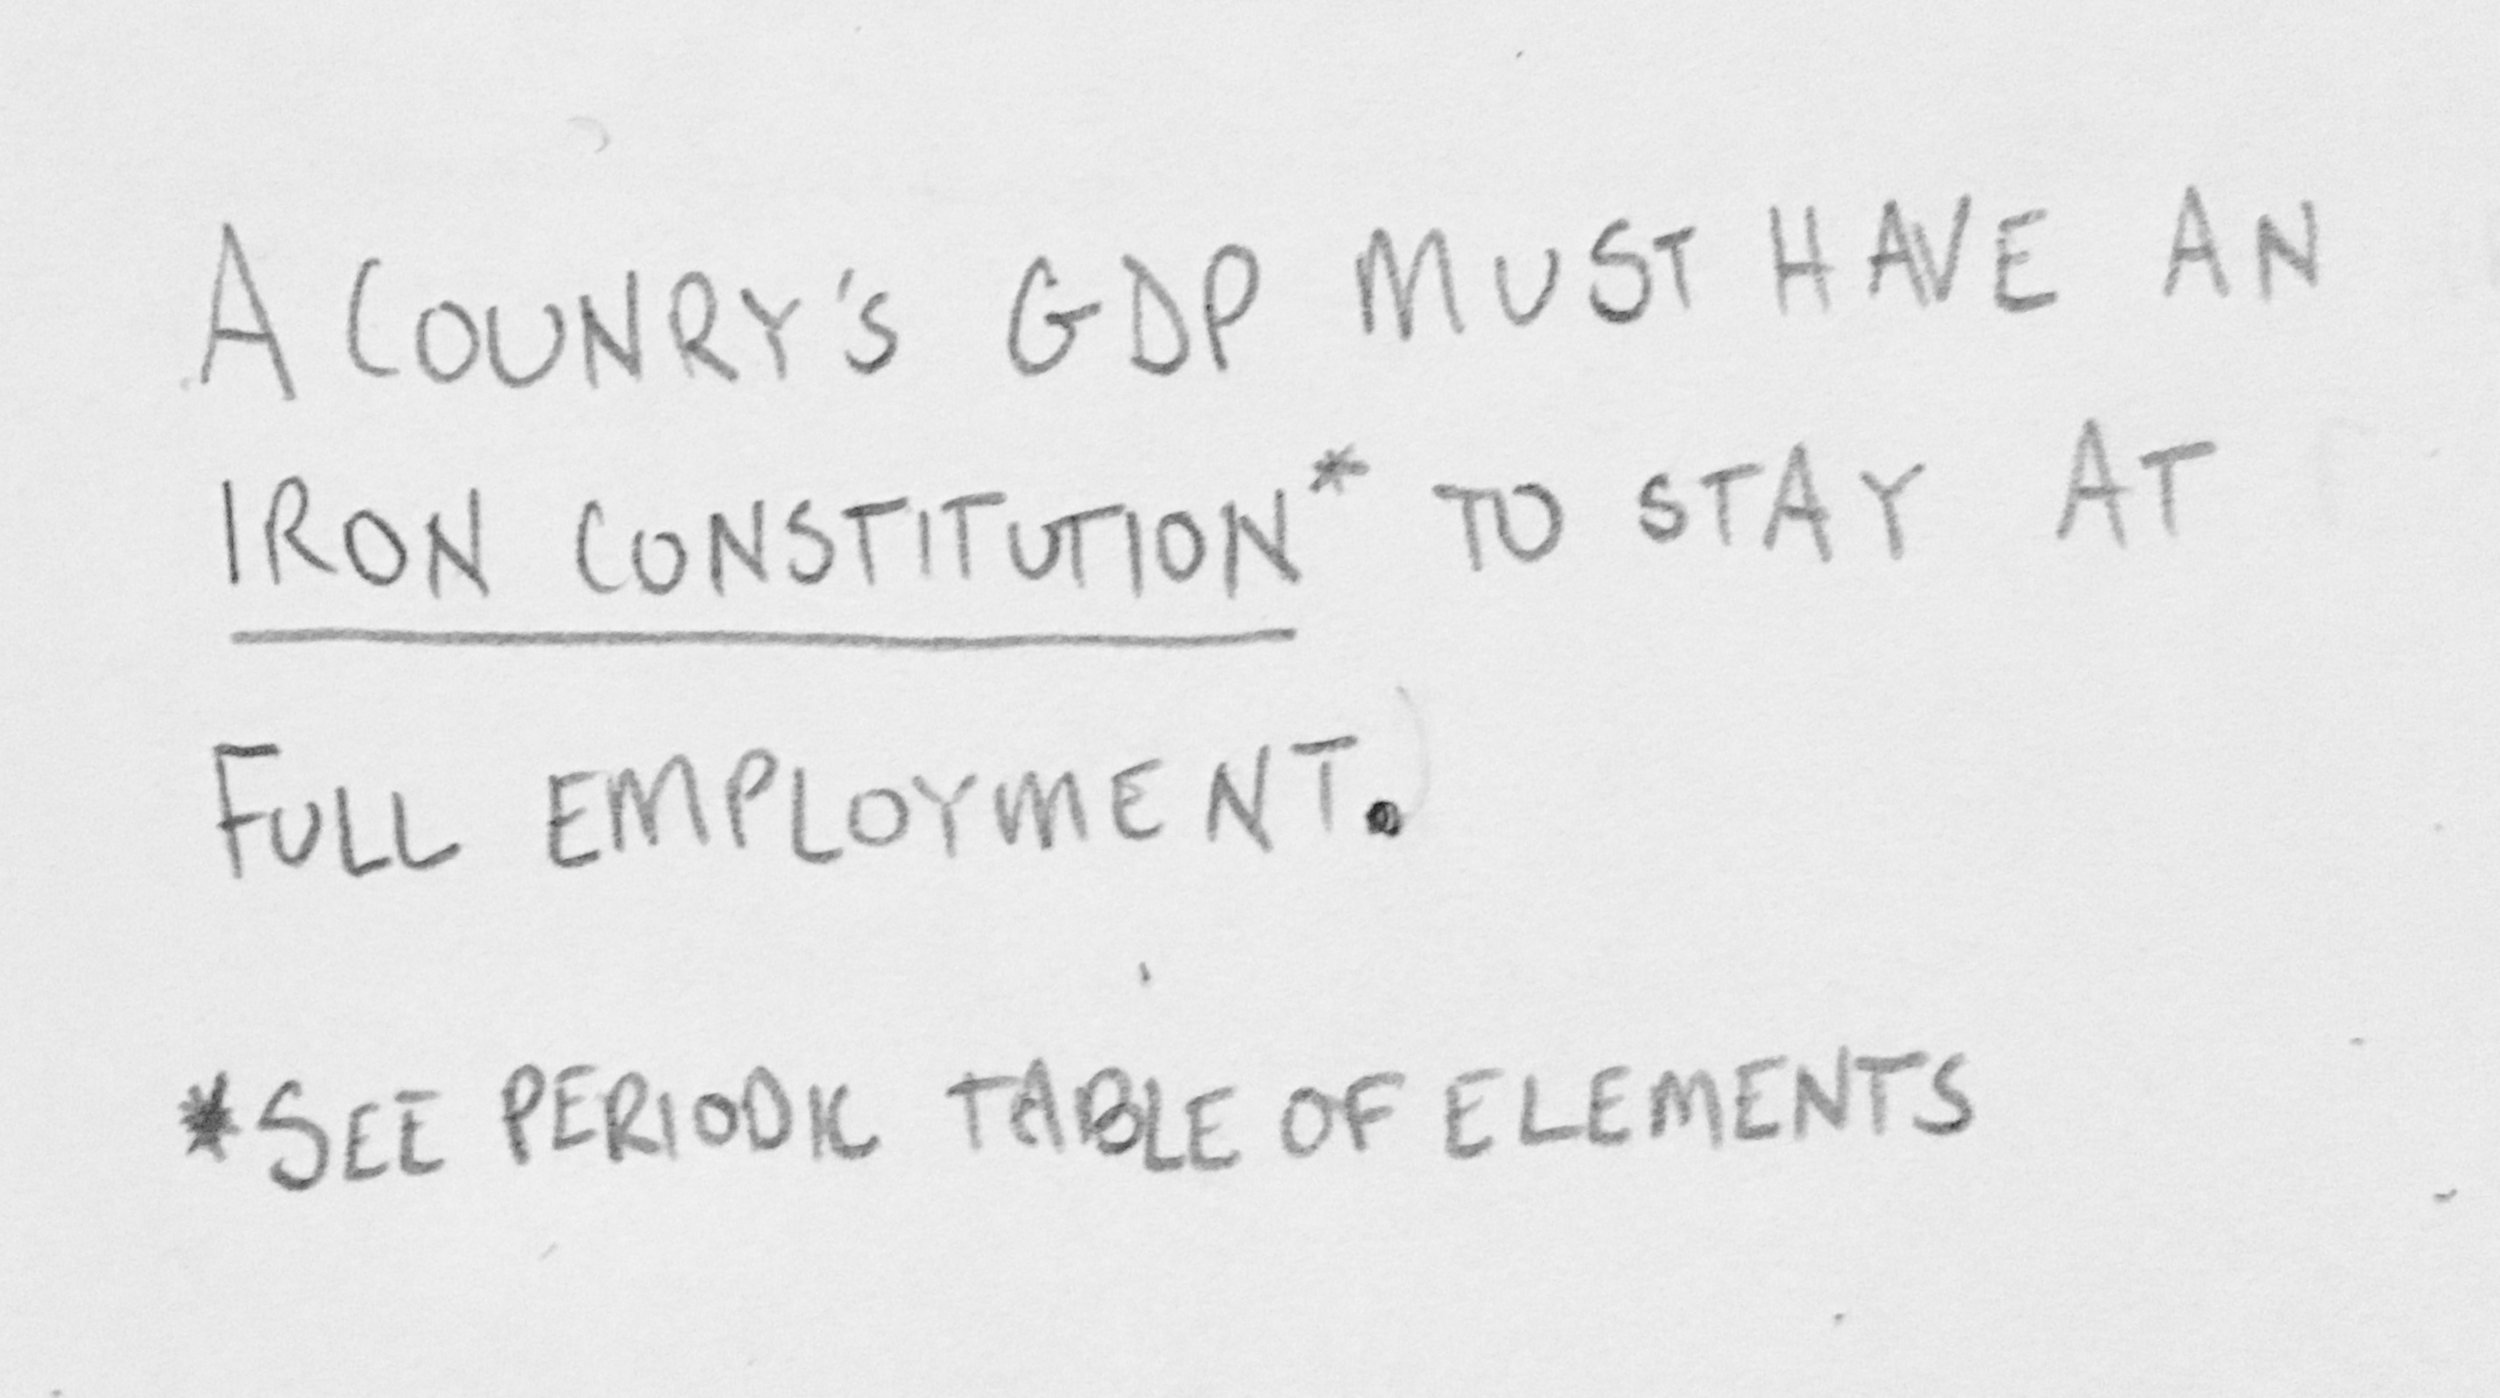 A COUNRY'S GDP MUST HAVE AN
IRON CONSTITUTION* TO STAY AT
FULL EMPLOYMENT.
*SEE PERIODIC TABLE OF ELEMENTS